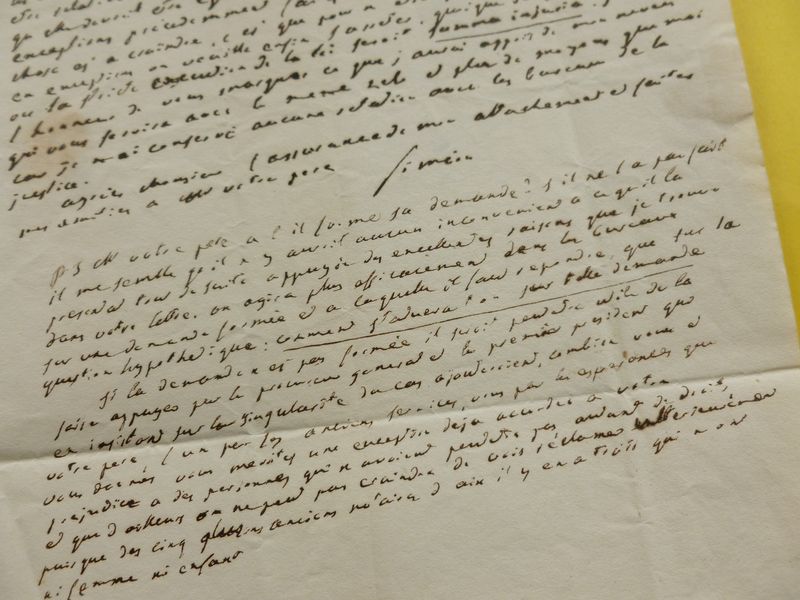 exceptions précédemment
chose est a craindre, c'est que pour n
en exceptions on veuille enfin
ou la stricte execution de la loi seroit summa injuria.
l honneur de vous marquer ce que j aurai appris de mon
qui vous servira avec le meme zele et plus de moyens que moi
car je n ai conservé aucune relation avec les bureaux de la
justice.
agréés monsieur l assurance de mon attachement et faites
mes amitiés a Mr votre pere
Siméon
P.S Mr votre pere a t il formé sa demande? s il ne l a pas fait
il me semble qu il n y auroit aucun inconvenient a ce qu il la
presentat tout de suite appuyée des excellentes raisons que je trouve
dans votre lettre. on agira plus efficacement dans les bureaux
sur une demande formée et a laquelle il faut repondre, que sur la
question hypothetique: comment statuera t on sur telle demande
si la demande n est pas formée il seroit peutetre utile de la
faire appuyer par le procureur general et le premier president qui
en insistant sur la singularité du cas ajouteroient, combien vous et
votre pere, l un par les anciens services, vous par les esperances que
vous donnés vous merités une exception deja accordée a votre
prejudice a des personnes qui n avoient peutetre pas autant de droit,
et que d ailleurs on ne peut pas craindre de voir réclamer ulterieurement
puisque des cinq anciens notaires d aix il y en a trois qui n ont
ni femme ni enfant